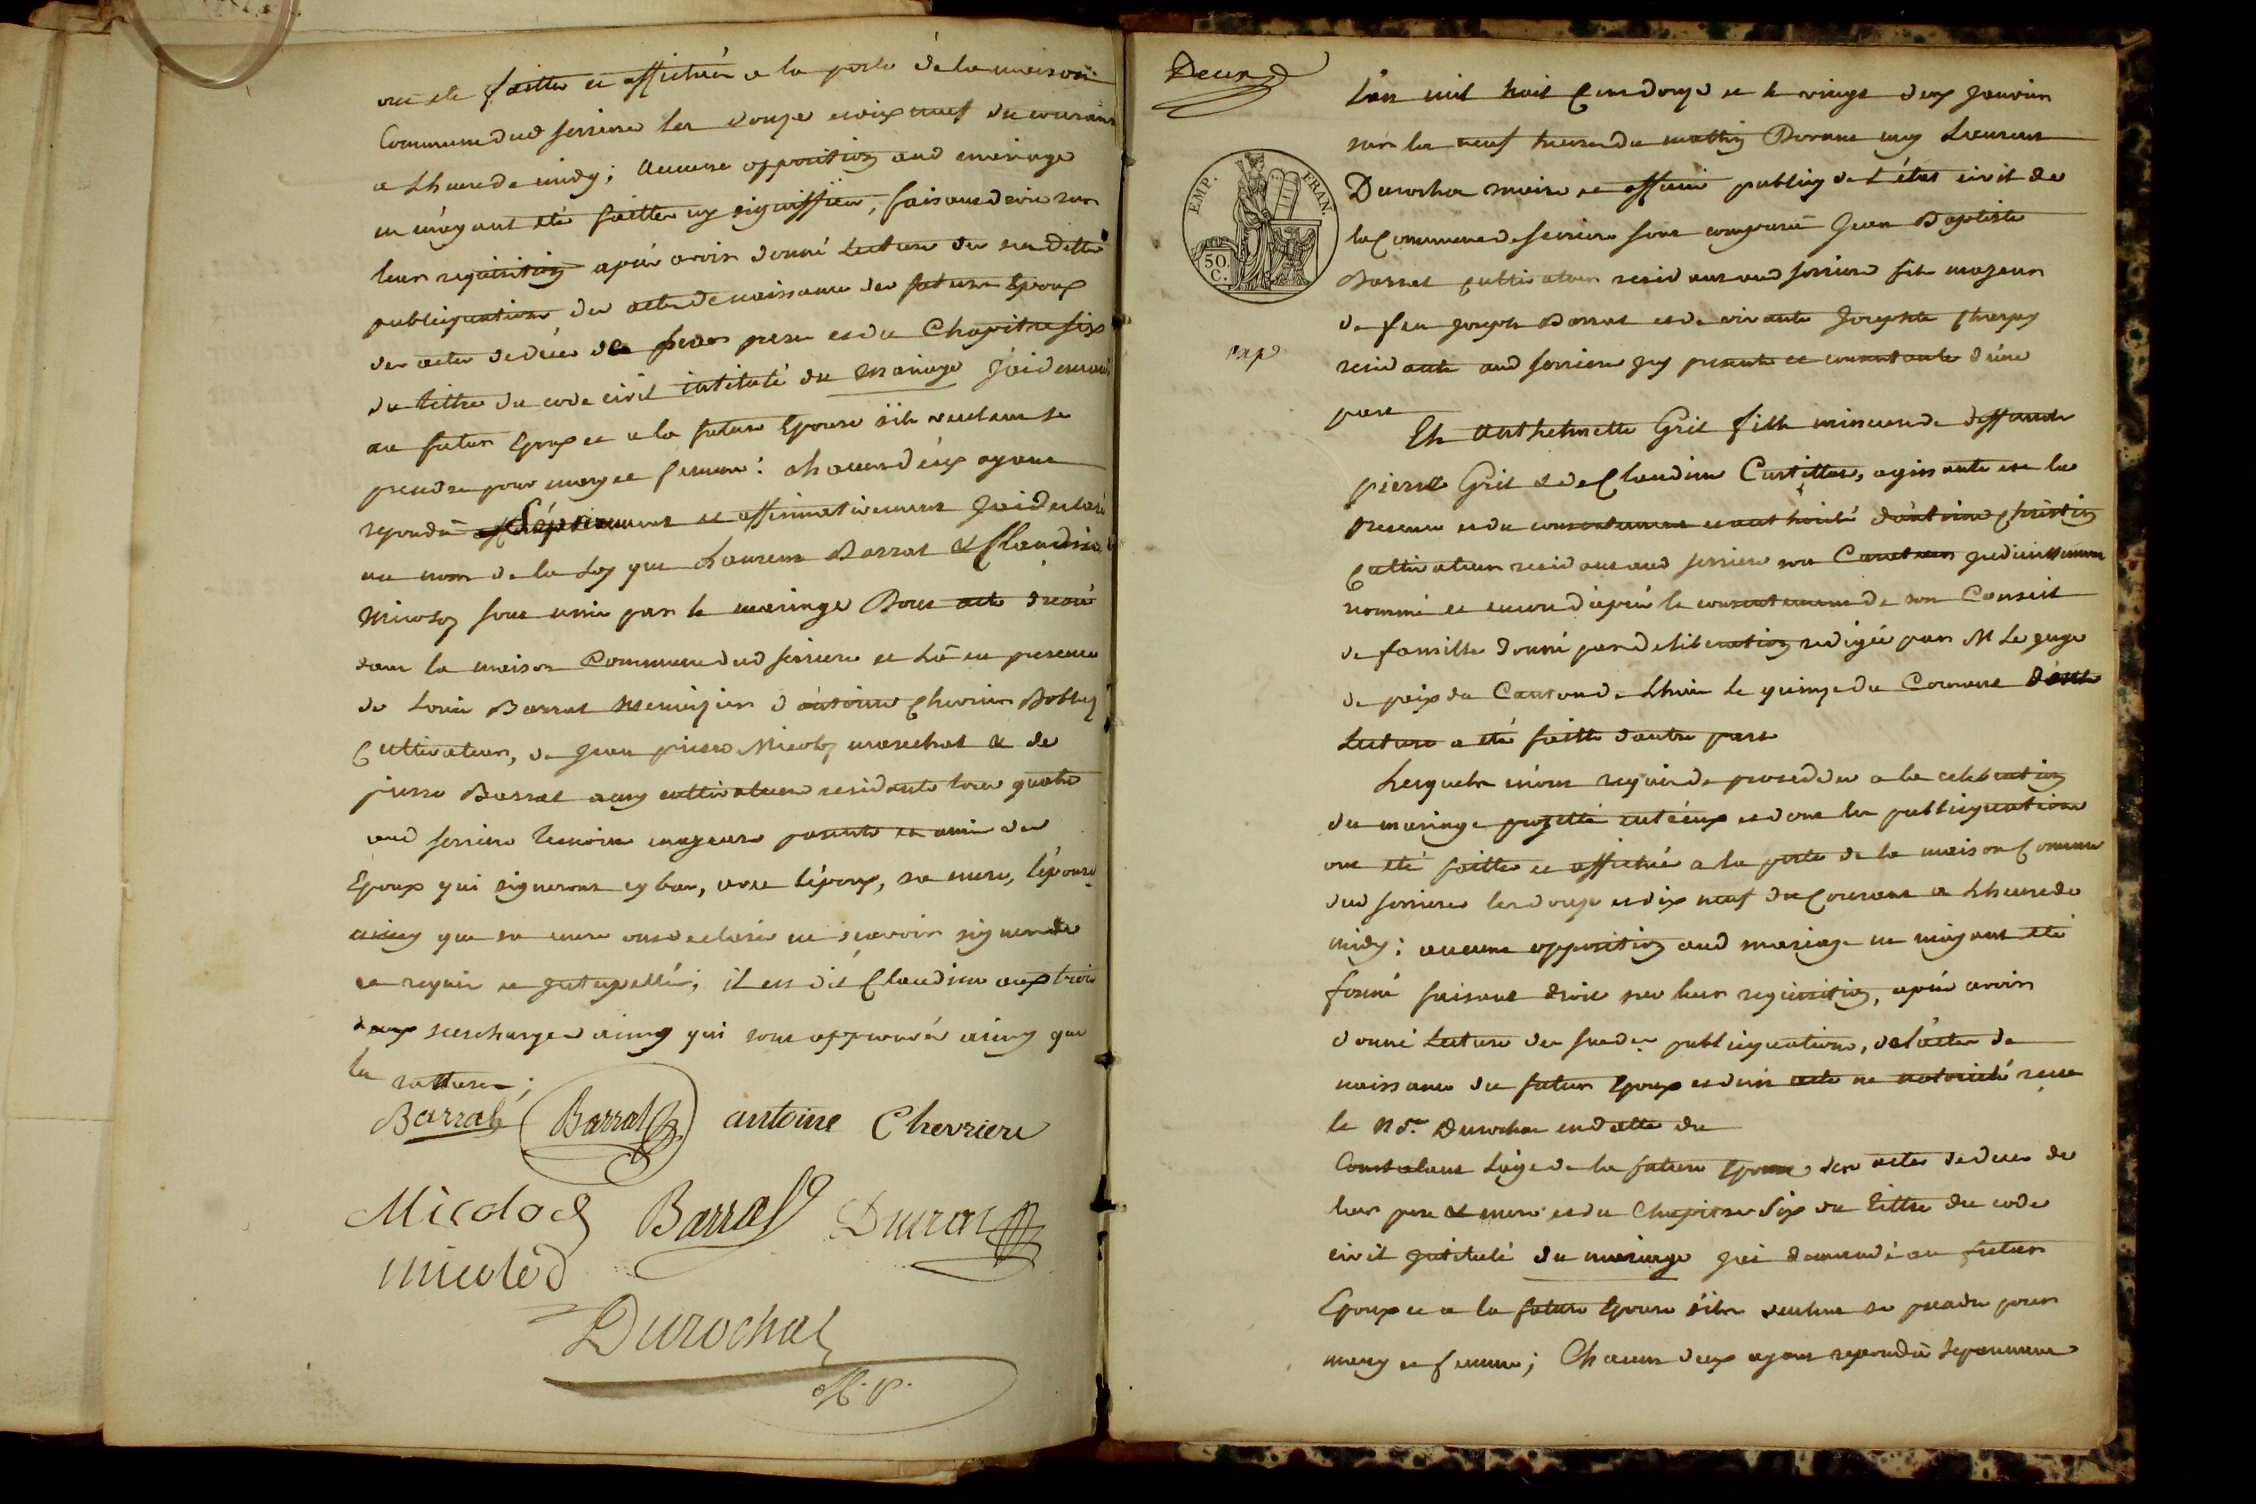 ont été faittes et affichées a la porte de la maison
Commune dud serriere les douze et dix neuf du courant
a Lheure de midy; aucune opposition aud mariage
ne m'ayant été faittes ny signiffiée, faisant droit sur
leur requisition après avoir donné Lecture des susdittes
publiquations des actes de naissance des futurs Epoux
des actes de décés de leurs peres et du Chapitre six
du tittre du code civil intitulé du mariage J'ai demandé
au futur Epoux et a la future Epouse s'ils veulent se
prendre pour mary et femme: chacun d'eux ayant
repondu séparement et affirmativement J'ai declaré
au nom de la Loy que Laurent Barral & Claudine
Micolod sont unis par le mariage Dont acte dréssé
dans la maison Commune dud serriere et Lû en presence
de Louis Barral menuizier d'antoine Chevrier
Cultivateur, de Jean pierre Micolod marechal & de
pierre Barral aussy cultivateur residents tous quatre
aud serriere temoins majeurs parents et amis des
Epoux qui signeront cy bas, avec l'époux, sa mere, l'épouse
ainsy que sa mere ont declaré ne scavoir signer de
ce requis et interpellés; il est dit Claudine aux trois
deux surcharges ainsy qui sont approuvés ainsy que
la ratture;
Barral Barral antoine Chevriere
Micolod Barral Durat
micolod
Durochat
Deux
EMP. FRAN.
50 C.
L'an mil huit Cent douze et le vingt deux Janvier
sur les neuf heures du mattin Devant moy Laurent
Durochat maire et officier publiq de L'état civil de
la Commune de serriere sont comparus Jean Baptiste
Barral Cultivateur residant aud serriere fils majeur
de feu Joseph Barral et de vivante Josephte
residante aud serriere Jcy presente et consentante d'une
part
Et anthelmette Gril fille mineure de deffunts
pierre Gril & de Claudine Curtillat, agissante en la
presence et du consentement et authorité d'antoine
Cultivateur residant aud serriere son Curateur
nommé et encore d'aprés le consentement de son Conseil
de famille donné par deliberation redigée par M Le Juge
de paix du Canton de Lhuis Le quinze du Courant dont
Lecture a été faitte d'autre part
Lesquels m'ont requis de proceder a la celebration
du mariage projetté entr'eux et dont les publiquations
ont été faittes et affichées a la porte de la maison Commune
dud serriere les douze et dix neuf du Courant a Lheure de
midy: aucune opposition aud mariage ne m'ayant été
formé faisant droit sur leur requisition, après avoir
donné Lecture des susdes publiquations, de l'acte de
naissance du futur Epoux et d'un acte de notorieté recu
le Durochat en datte du
Constatant L'age de la future Epouse des actes de deces de
leur pere & mere et du Chapitre six du tittre du code
civil Jntitulé du mariage J'ai demandé au futur
Epoux et a la future Epouse s'ils veulent se prendre pour
mary et femme; Chacun d'eux ayant repondu separement